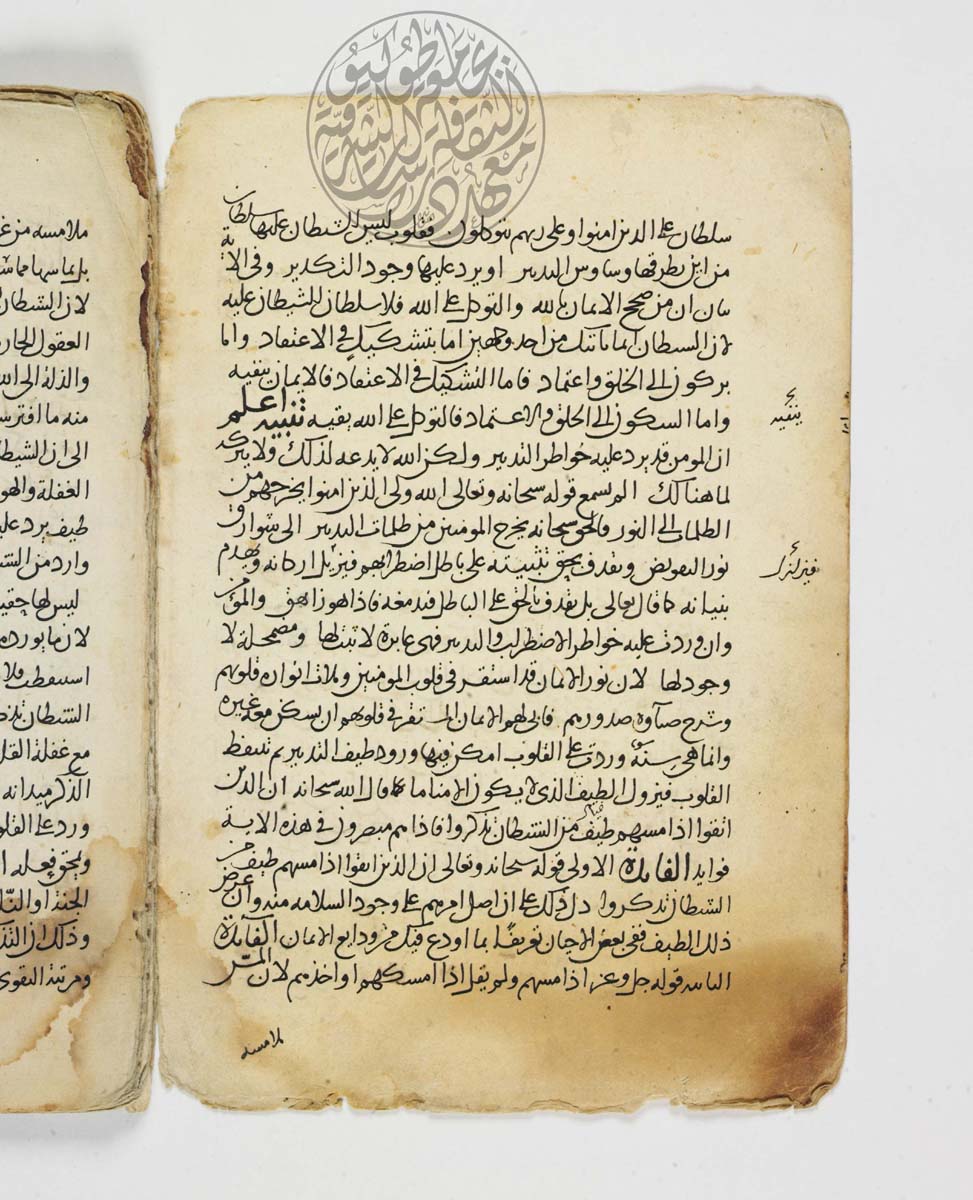 سلطان على الذين امنوا وعلى ربهم يتوكلون فقلوب ليس للشيطان عليها سلطان
من اين يطرقها وساوس التدبير او يرد عليها وجود التكدير وفي الاية
بيان ان من صحح الايمان بالله والتوكل على الله فلا سلطان للشيطان عليه
لان الشيطان انما ياتيك من احد وجهين اما بتشكيك في الاعتقاد واما
بركون الى الخلق واعتماد فاما التشكيك في الاعتقاد فالايمان ينفيه
واما السكون الى الخلق والاعتماد فالتوكل على الله ينفيه تنبيه اعلم
ان المومن قد يرد عليه خواطر التدبير ولكن الله لا يدعه لذلك ولا يتركه
لما هنالك الم تسمع قوله سبحانه وتعالى الله ولي الذين امنوا يخرجهم من
الظلمات الى النور فالحق سبحانه يخرج المومنين من ظلمات التدبير الى شوارق
نور التفويض ويقذف بحق تثبيته على باطل اضطرابهم فيزيل اركانه ويهدم
بنيانه كما قال تعالى بل نقذف بالحق على الباطل فيدمغه فاذا هو زاهق والمؤمن
وان وردت عليه خواطر الاضطراب والتدبير فهي عابرة لا تثبت لها ومضمحلة لا
وجود لها لان نور الايمان قد استقر في قلوب المومنين وملات انواره قلوبهم
وشرح ضياوه صدورهم فابى لهم الايمان المستقر في قلوبهم ان يسكن معه غيره
وانما هي سنة وردت على القلوب امكن فيها ورود طيف التدبير ثم تستيقظ
القلوب فيزول الطيف الذي لا يكون الا مناما كما قال الله سبحانه ان الذين
اتقوا اذا مسهم طيف من الشيطان تذكروا فاذا هم مبصرون في هذه الاية
فوايد الفايدة الاولى قوله سبحانه وتعالى ان الذين اتقوا اذا مسهم طيف من
الشيطان تذكروا دل ذلك على ان اصل امرهم على وجود السلامه منه وان عرض
ذلك الطيف ففي بعض الاحيان تعريفا بما اودع فيك من ودايع الايمان الفايدة
الثانيه قوله جل وعز اذا مسهم ولم يقل اذا امسكهم او اخذهم لان المس
ملامسه
ينفيه
فيزلزل
ملامسه من غ
لان الشيطان
والذلة الى الله
الى ان الشيطا
الغفلة والهو
طيف يرد علي
وارد من الش
لان ما يورده
استيقظت فلا
الشيطان تذك
مع غفلة القل
الذكر ميدانه
ورد على القلو
الجنة او النا
ومرتبة التقوى
معهد دراسات الثقافة الشرقية بجامعة طوكيو